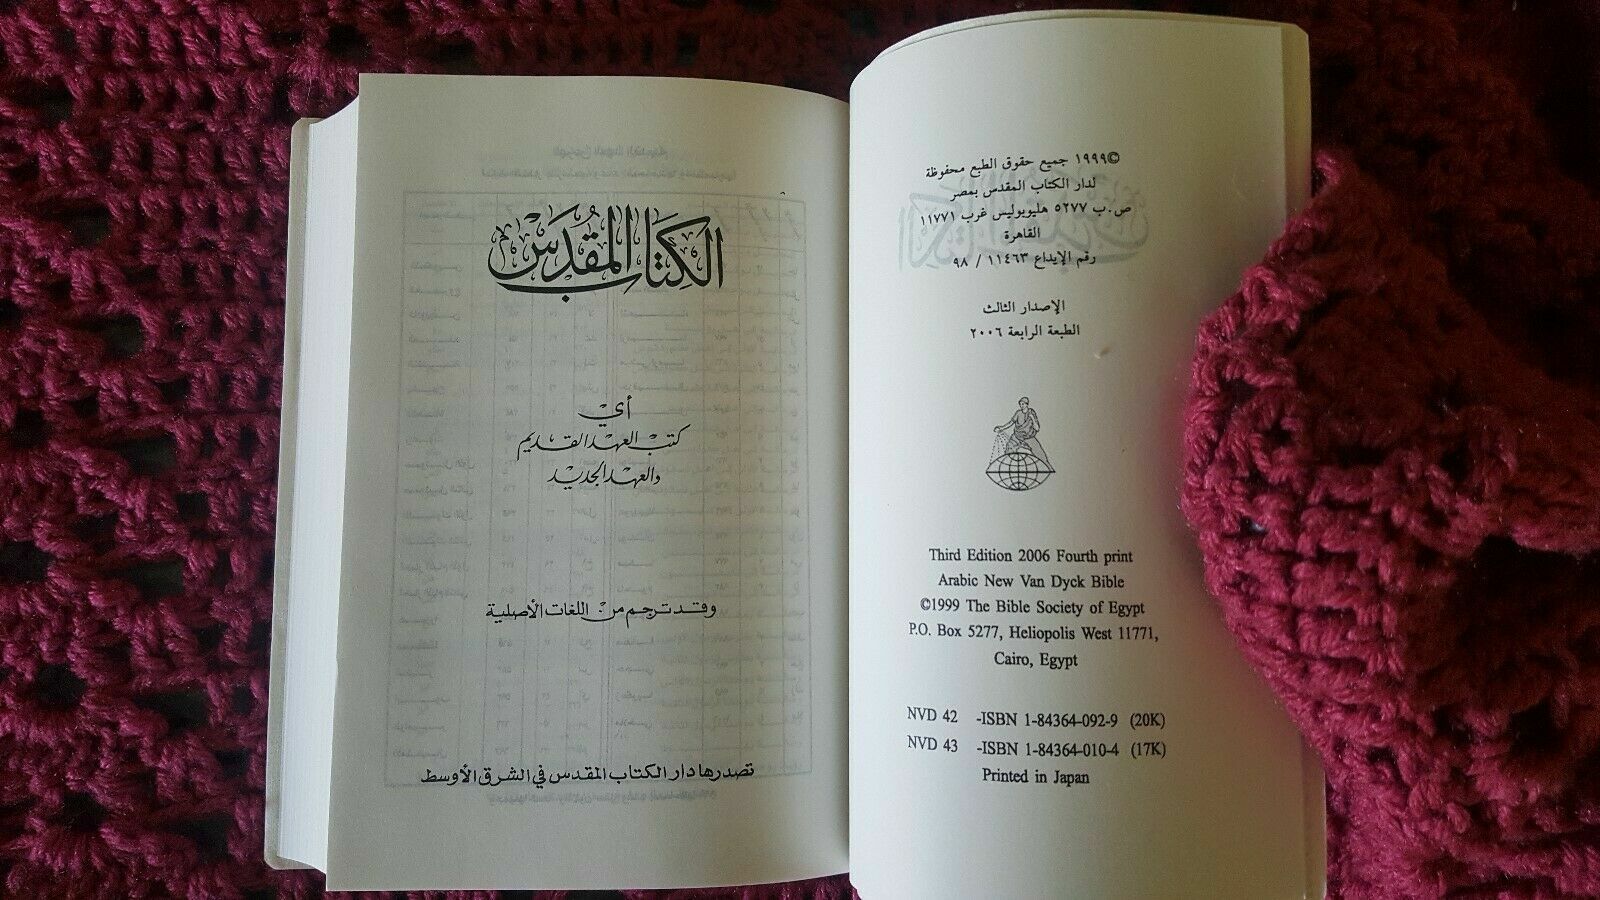 الكِتَابُ المُقَدَّس
أي
كتب العهد القديم
والعهد الجديد
وقد ترجم من اللغات الأصلية
تصدرها دار الكتاب المقدس في الشرق الأوسط
©١٩٩٩ جميع حقوق الطبع محفوظة
لدار الكتاب المقدس بمصر
ص.ب ٥٢٧٧ هليوبوليس غرب ١١٧٧١
القاهرة
رقم الإيداع ١١٤٦٣ / ٩٨
الإصدار الثالث
الطبعة الرابعة ٢٠٠٦
Third Edition 2006 Fourth print
Arabic New Van Dyck Bible
©1999 The Bible Society of Egypt
P.O. Box 5277, Heliopolis West 11771,
Cairo, Egypt
NVD 42 -ISBN 1-84364-092-9 (20K)
NVD 43 -ISBN 1-84364-010-4 (17K)
Printed in Japan